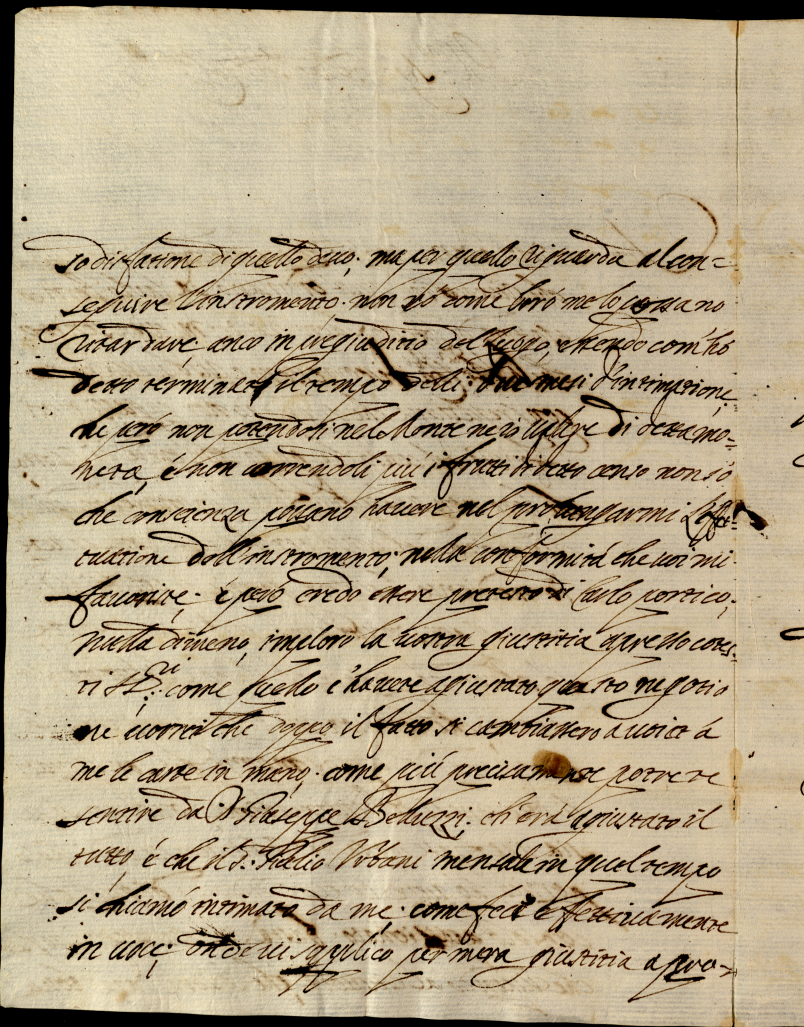 sodisfatione di quello devo; ma per quello riguarda al con=
seguire l'instromento. non so come loro me lo possano
ritardare anco in pregiuditio del luogo, essendo com'hò
detto terminato il tempo delli due mesi d'intimatione,
che però non potendosi nel Monte nero di detta mo=
neta, é non correndoli più i frutti di detto censo non só
che conscienza possano havere nel prolungarmi l'effet=
tuatione dell'instromento; nella conformitá che voi mi
favorite; é però credo essere pretesto di Carlo portico;
nulla dimeno, imploro la vostra giustitia apresso cotes=
ti SS.ri come quello é havete agiustato questo negotio
ne vorrei che doppo il fatto si cambiassero a voi et á
me le carte in mano; come più precisamente potrete
sentire da Giuseppe Belluzzi, ch'era agiustato il
tutto, é che il S. Italio Urbani in quel tempo
si chiamó intimato da me; come feci effettivamente
in voce; onde vi suplico per mera giustitia a pro=